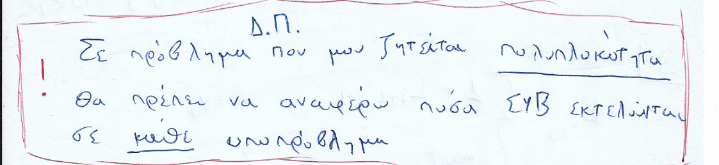 Δ.Π.
! Σε πρόβλημα που μου ζητείται πολυπλοκότητα
θα πρέπει να αναφέρω πόσα ΣΥΒ εκτελούνται
σε κάθε υποπρόβλημα